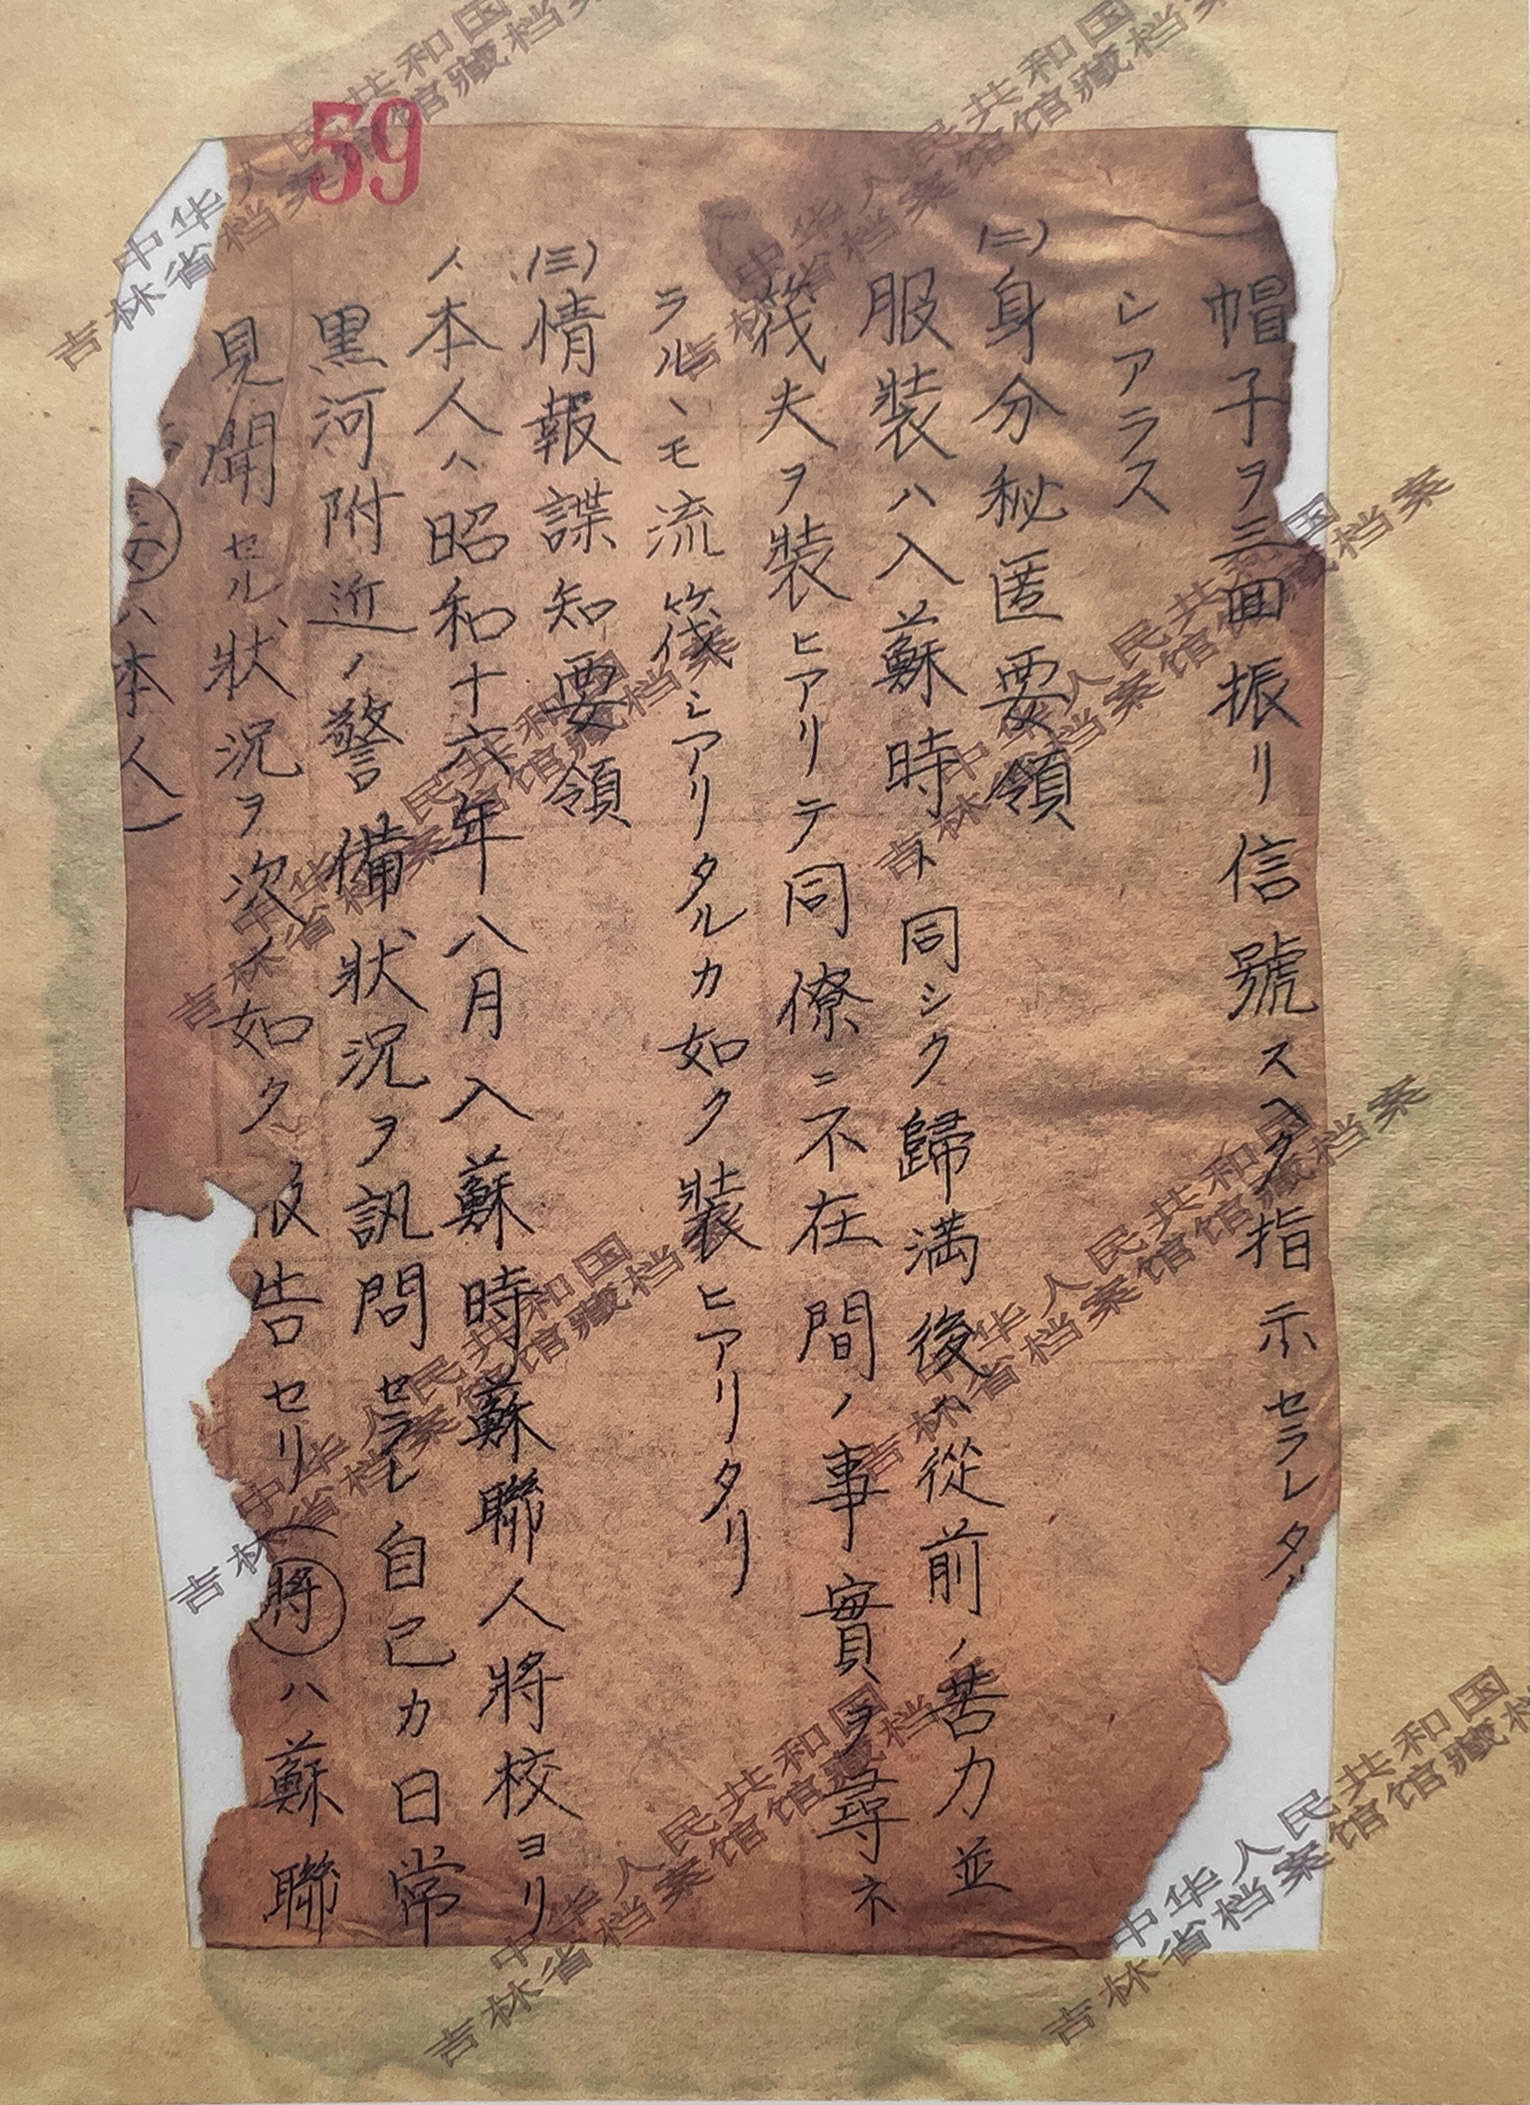 59
帽子ヲ三回振リ信號スヘク指示セラレタ
シアラス
(二)身分秘匿要領
服装ハ入蘇時ト同シク歸満後ハ從前ノ苦力並
筏夫ヲ装ヒアリテ同僚ニ不在間ノ事實ヲ尋ネ
ラルヽモ流筏シアリタルカ如ク装ヒアリタリ
(三)情報諜知要領
本人ハ昭和十六年八月入蘇時蘇聯人將校ヨリ
黒河附近ノ警備状況ヲ訊問セラレ自己カ日常
見聞セル状況ヲ次ノ如ク 告セリ(將ハ蘇聯
ハ本人)
中华人民共和国
吉林省档案馆馆藏档案